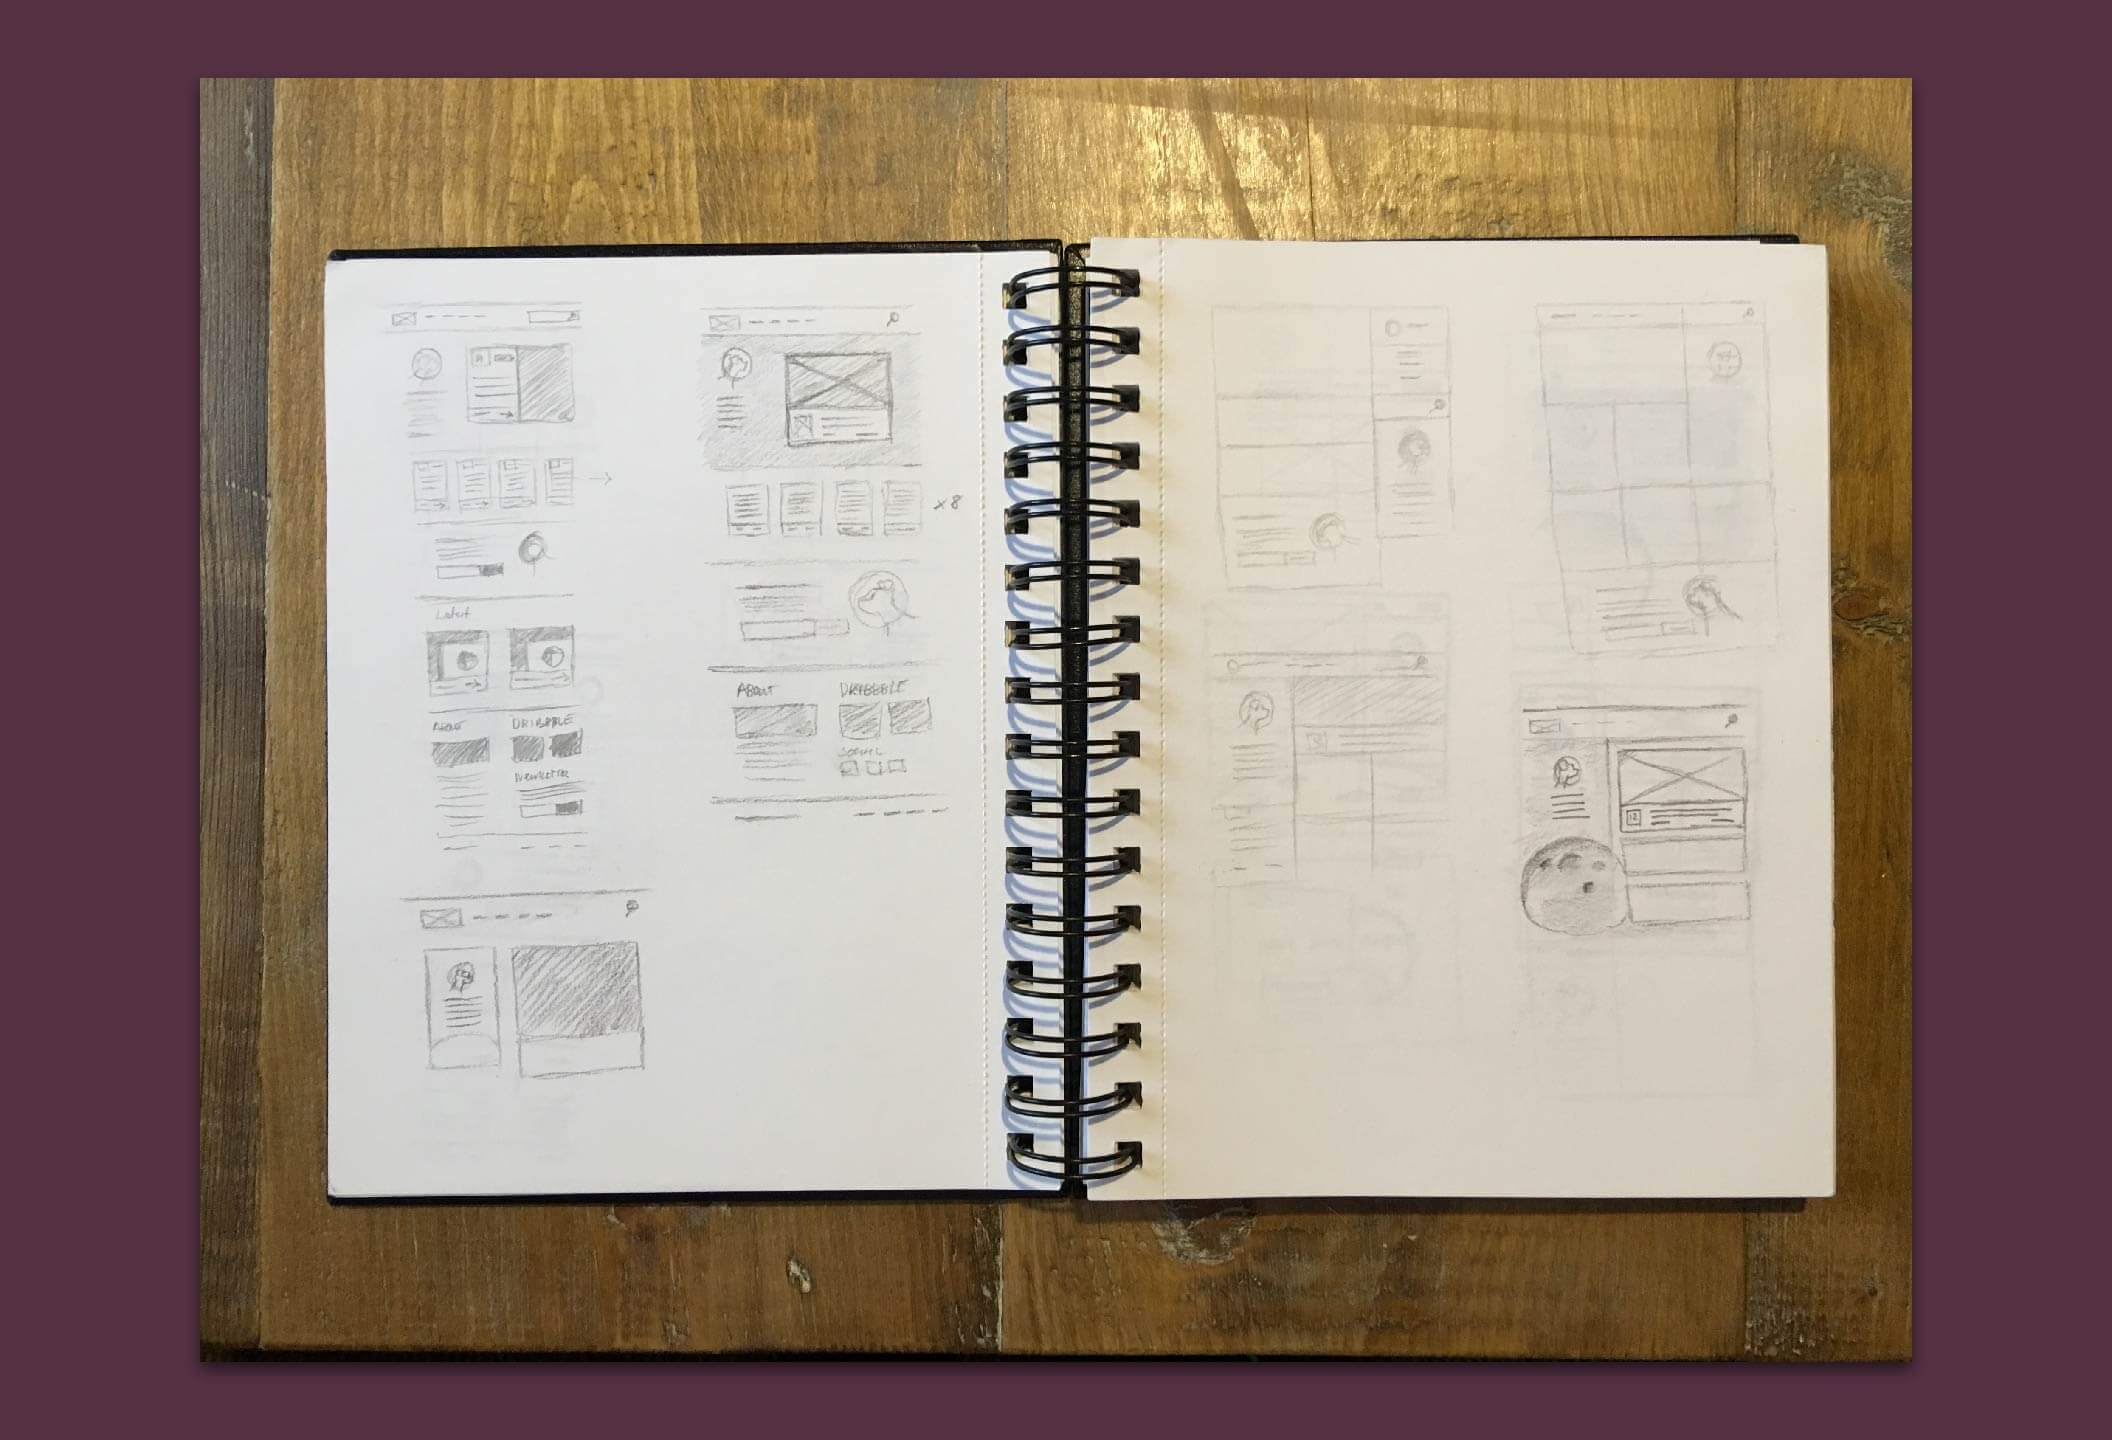 Latest
About
DRIBBBLE
Newsletter
x8
ABOUT
DRIBBBLE
SOCIAL
12